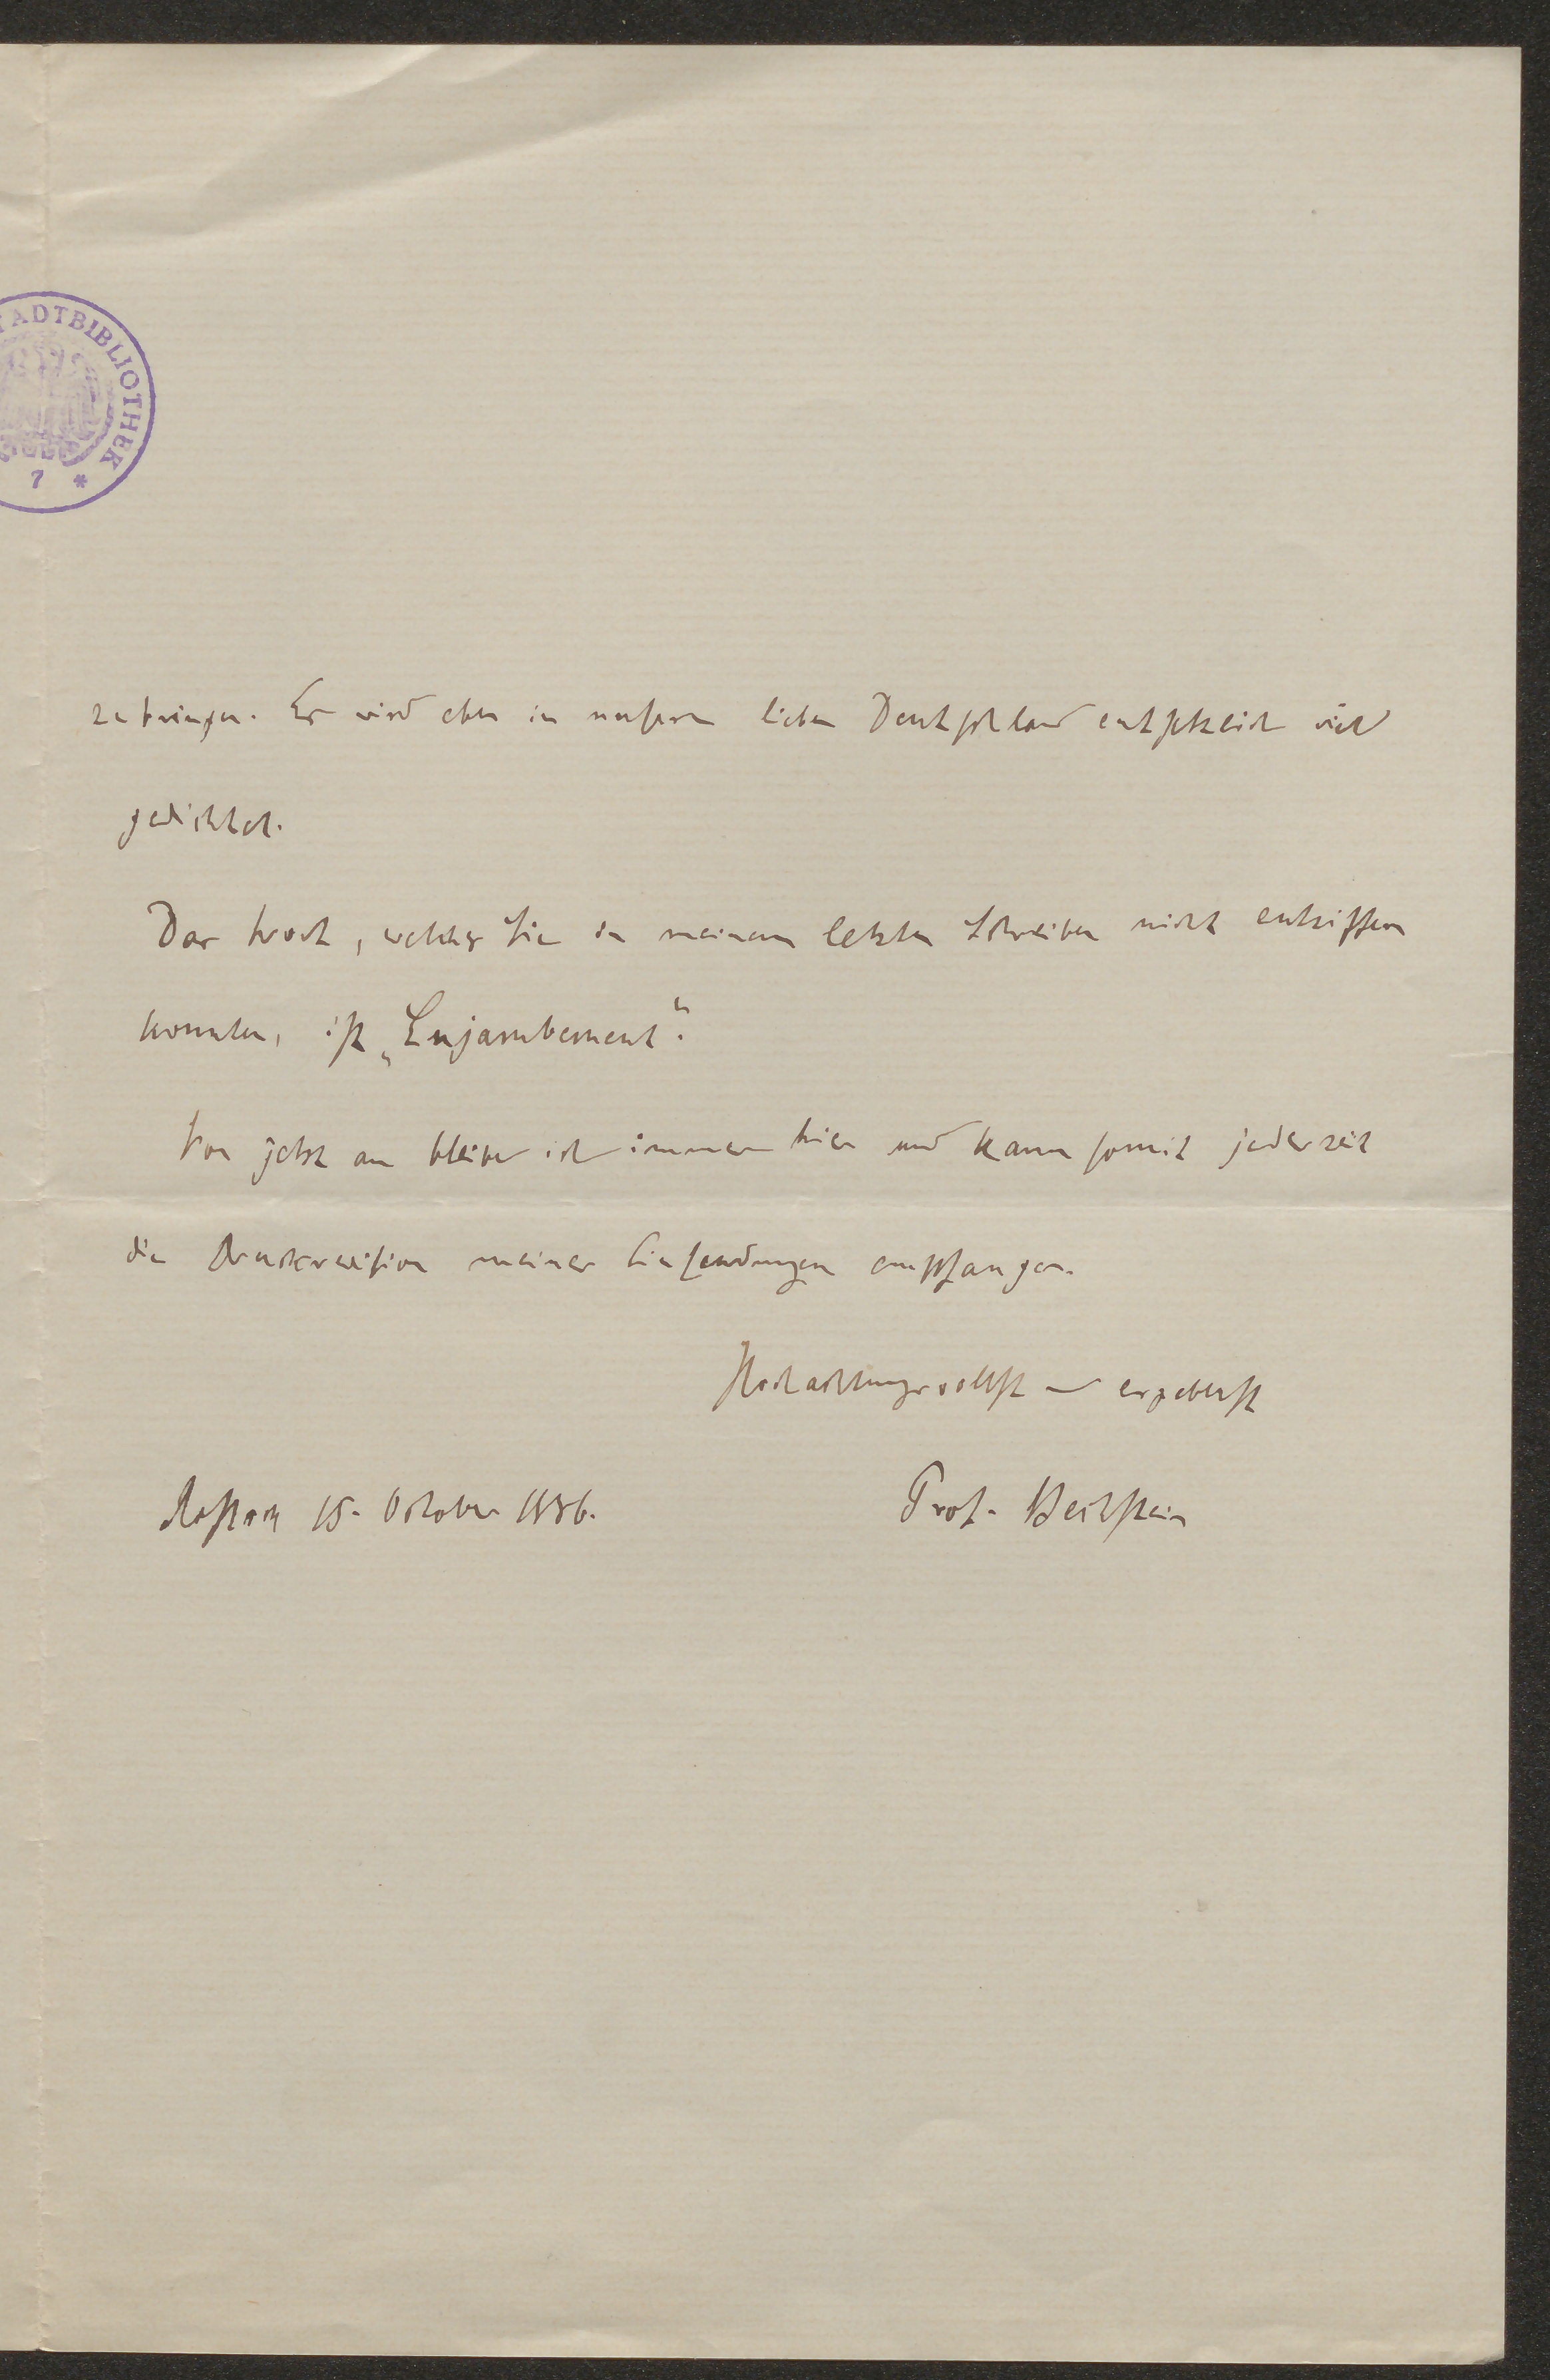 STADTBIBLIOTHEK
7 *
zu bringen. Es wird eben in unserm lieben Deutschland entsetzlich viel
gedichtet.
Das Wort, welches Sie in meinem letzten Schreiben nicht entziffern
konnten, ist „Enjambement“.
Von jetzt an bleibe ich immer hier und kann somit jederzeit
die Druckrevision meiner Einsendungen empfangen.
Hochachtungsvollst und ergebenst
Rostock 15. October 1886. Prof. Bechstein